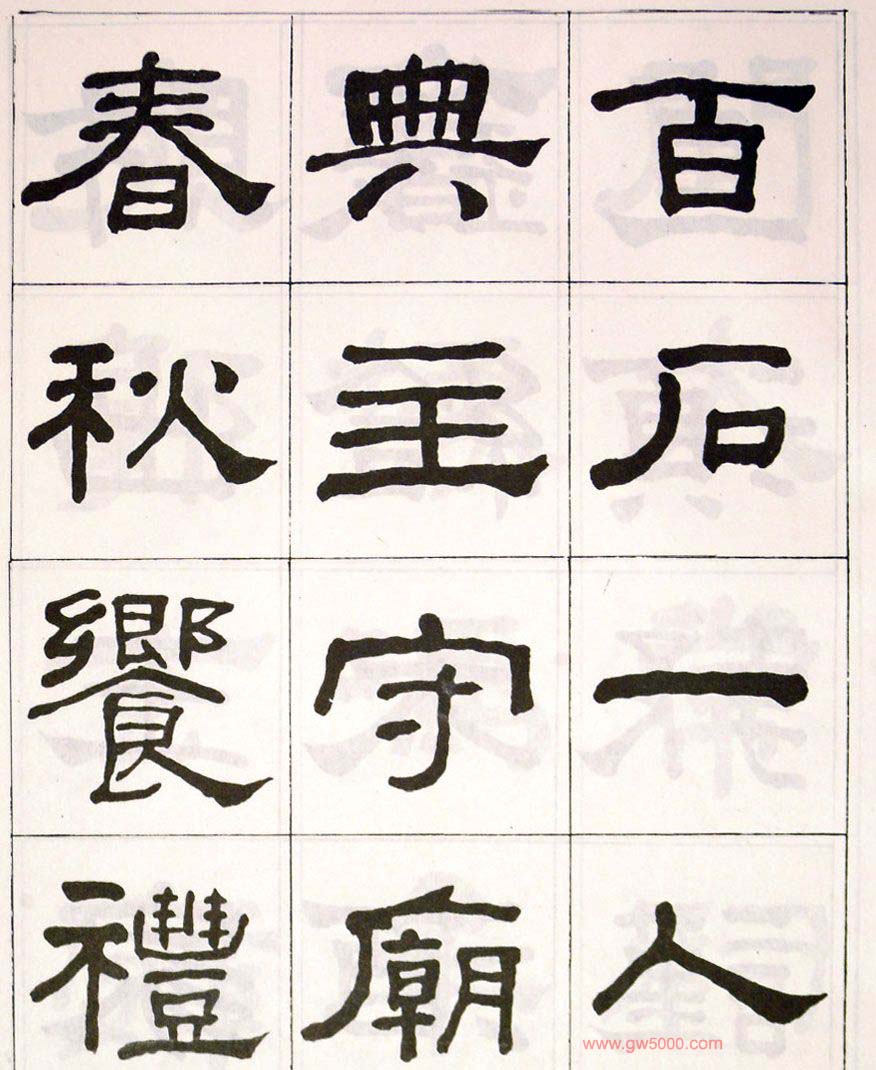 百石一人
典主守廟
春秋饗禮
www.gw5000.com